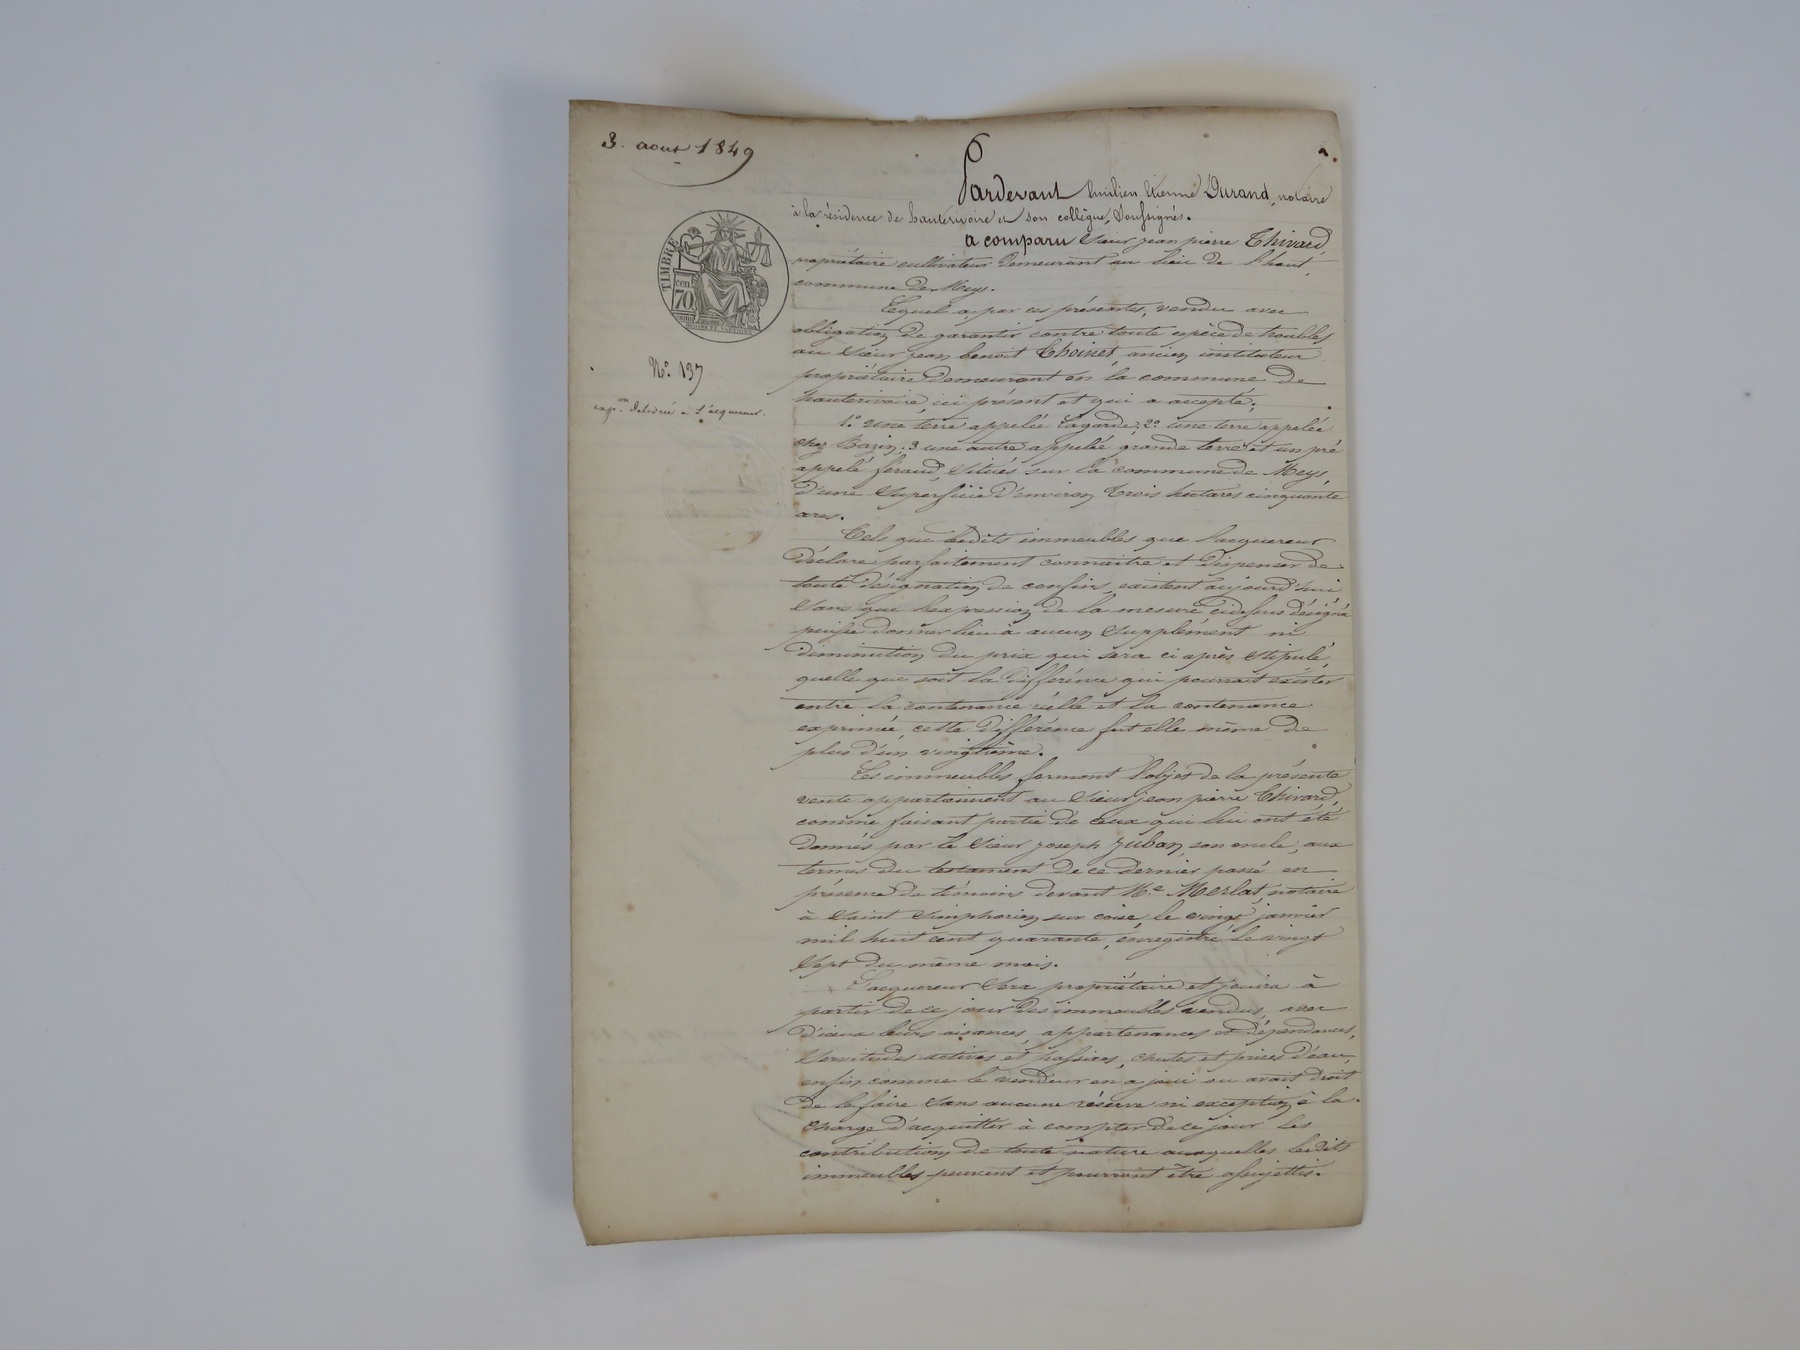 3. aout 1849
2.
Pardevant Emilien Etienne Durand, notaire
à la résidence de hauterivoire et son collègue, soussignés.
a comparu sieur jean pierre Thivard
propriétaire cultivateur demeurant au lieu de
commune de Meys.
TIMBRE
cen.
70.
Lequel a par ces présentes, vendu avec
obligation de garantir contre toute espèce de troubles
au sieur jean benoit Thoinet, ancien instituteur
N.o 137
propriétaire demeurant en la commune de
hauterivoire, ici présent et qui a accepté;
exp.on délivrée à l'acquereur.
1.o une terre appelée Lagarde; 2.o une terre appelée
chez Bazin; 3 une autre appelée grande terre et un pré
appelé feraud, situés sur la commune de Meys,
d'une superficie d'environ trois hectares cinquante
ares.
Tels que lesdits immeubles que l'acquereur
déclare parfaitement connaitre et dispenser de
toute désignation de confins, existent aujourd'hui
sans que l'expression de la mesure ci dessus désignée
puisse donner lieu à aucun supplément ni
diminution du prix qui sera ci après stipulé,
quelle que soit la différence qui pourrait exister
entre la contenance réelle et la contenance
exprimée, cette différence fut elle même de
plus d'un vingtième.
Les immeubles formant l'objet de la présente
vente appartiennent au sieur jean pierre Thivard,
comme faisant partie de ceux qui lui ont été
donnés par le sieur joseph Juban, son oncle, aux
termes du testament de ce dernier passé en
présence de témoins devant M.e Merlat, notaire
à saint simphorien sur coise, le vingt janvier
mil huit cent quarante, enregistré le vingt
sept du même mois.
L'acquereur sera propriétaire et jouira à
partir de ce jour des immeubles vendus, avec
d'iceux leurs aisances, appartenances et dépendances,
servitudes actives et passives, chutes et prises d'eau,
enfin comme le vendeur en a joui ou avait droit
de le faire sans aucune réserve ni exception, à la
charge d'acquitter à compter de ce jour les
contributions de toute nature auxquelles lesdits
immeubles peuvent et pourront être assujettis.